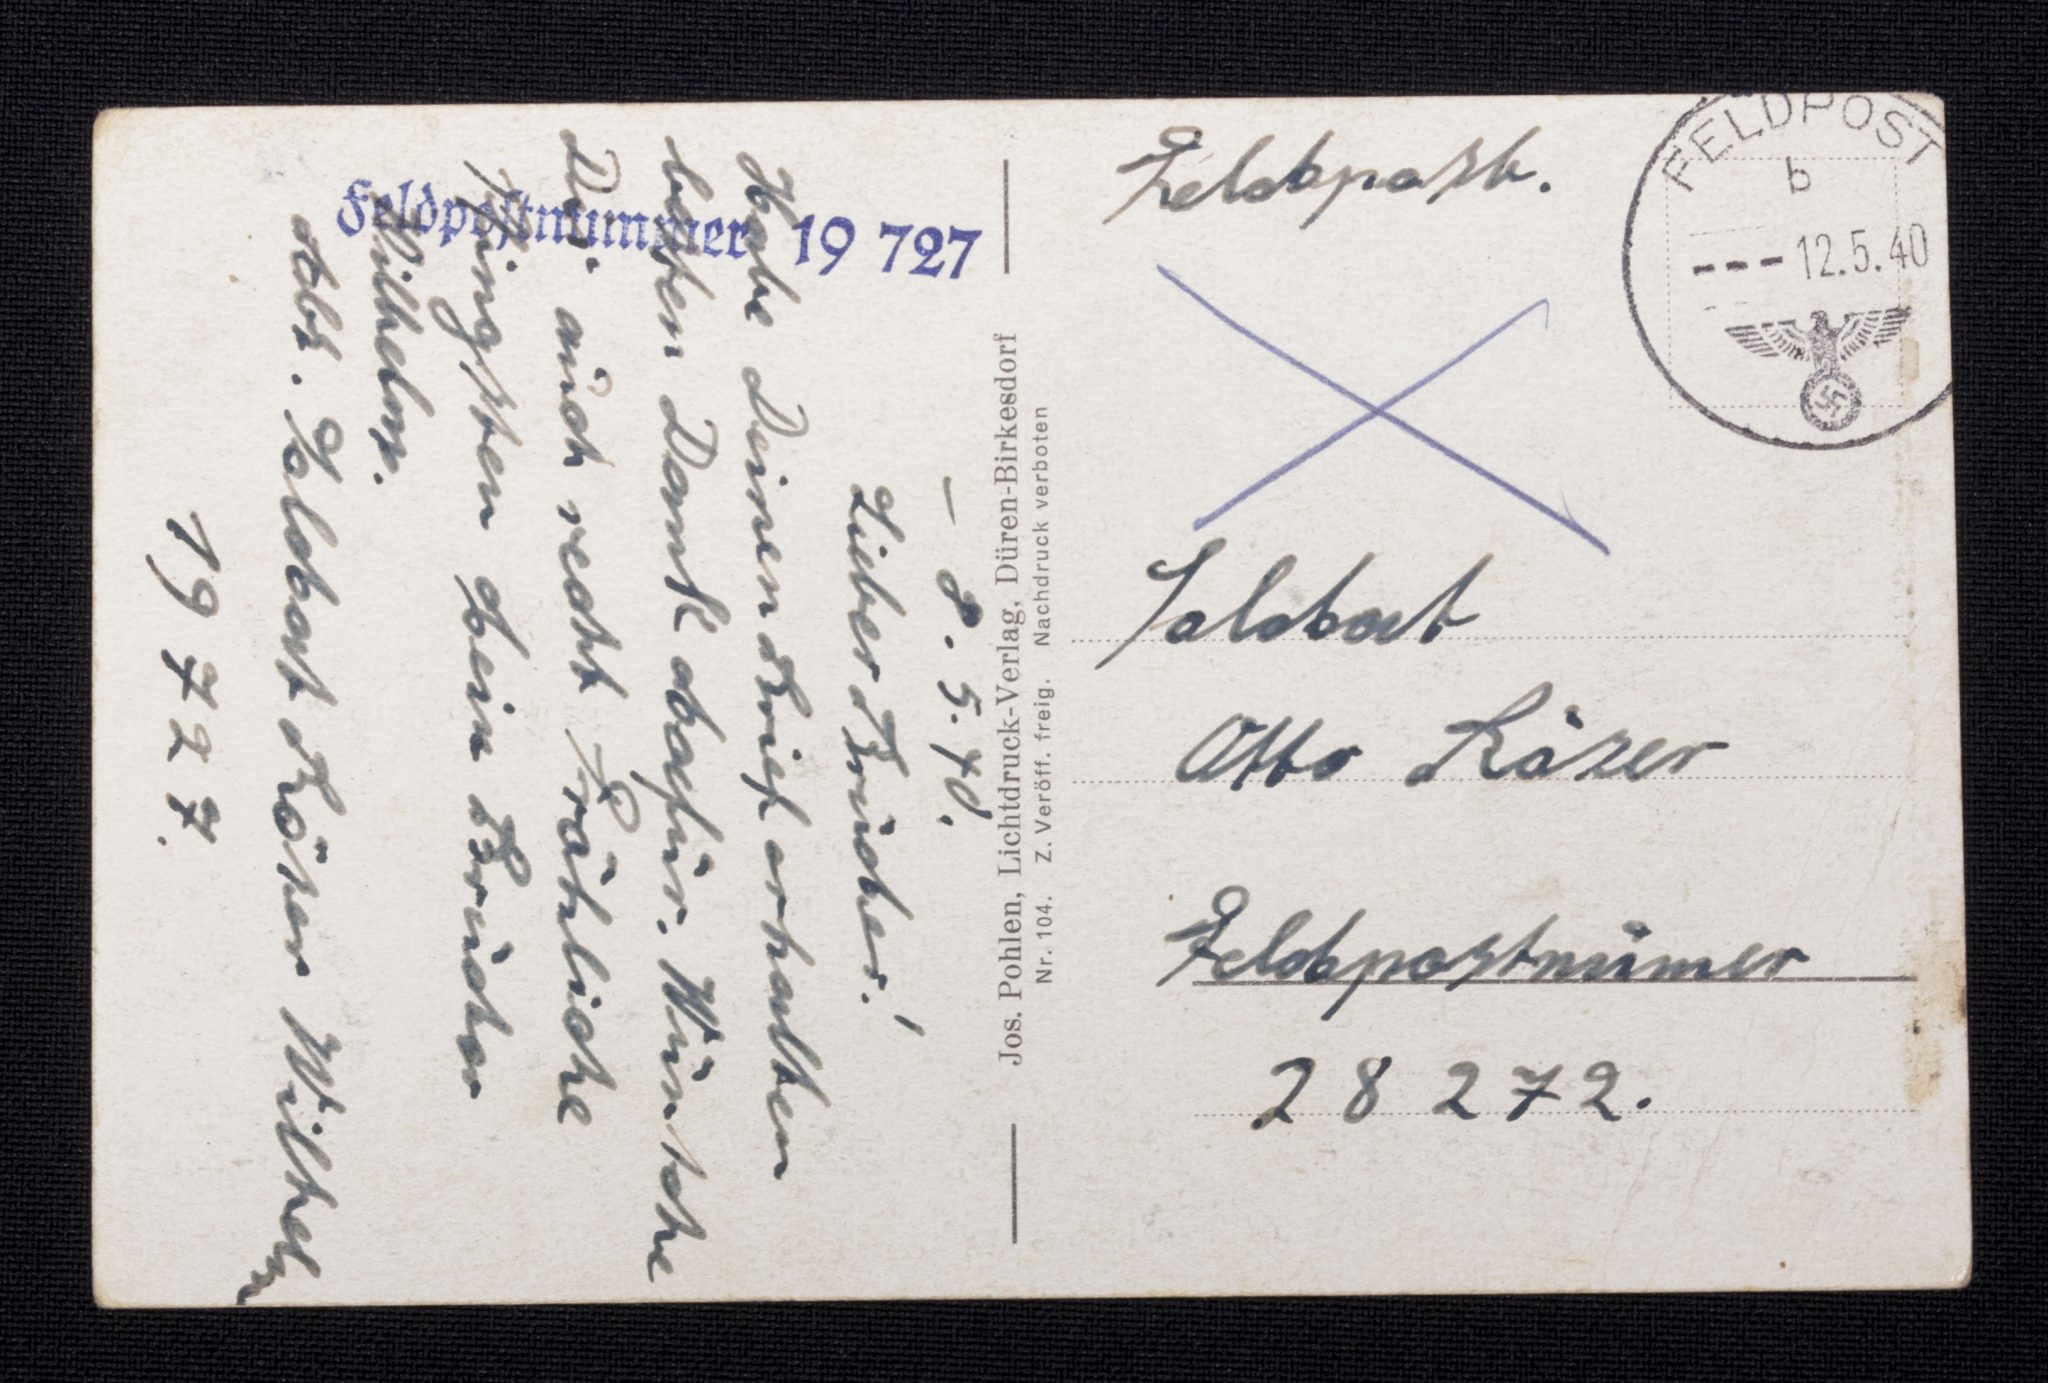 Feldpost.
FELDPOST
b
---12.5.40
Soldat
Otto Käser
Feldpostnümer
28 272.
Jos. Pohlen, Lichtdruck-Verlag, Düren-Birkesdorf
Nr. 104. Z. Veröff. freig. Nachdruck verboten
Feldpostnummer 19 727
– 8. 5. 40.
Lieber Brüder!
Habe Deinen Brief erhalten
besten Dank dafür. Wünsche
Dir auch recht Fröhliche
Pfingsten dein Brüder
Wilhelm.
Abs. Soldat Käser Wilhelm
19727.